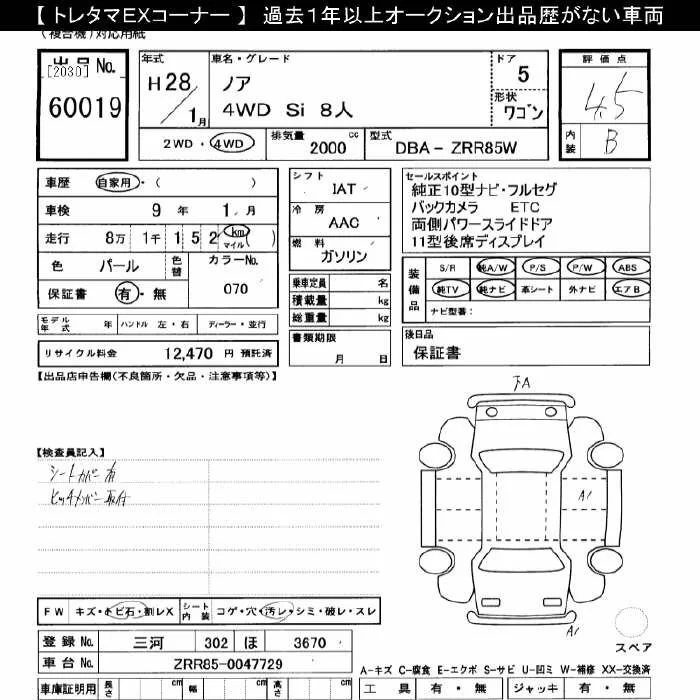 【 トレタマEXコーナー 】 過去１年以上オークション出品歴がない車両
(複合機)対応用紙
出品 No.
[2030]
60019
年式
H 28 / 1月
車名・グレード
ノア
4WD Si 8人
ドア
5
形状
ワゴン
評価点
4.5
内装
B
2WD・4WD
排気量
2000 cc
型式
DBA - ZRR85W
車歴 自家用・( )
車検 9 年 1 月
走行 8万 1千 1 5 2 km マイル ( )
色 パール 色替 カラーNo. 070
保証書 有・無
シフト
IAT
冷房
AAC
燃料
ガソリン
乗車定員 名
積載量 kg
総重量 kg
セールスポイント
純正10型ナビ・フルセグ
バックカメラ ETC
両側パワースライドドア
11型後席ディスプレイ
装備品
S/R 純A/W P/S P/W ABS
純TV 純ナビ 革シート 外ナビ エアB
ナビ型番:
モデル年式 年 ハンドル 左・右 ディーラー・並行
リサイクル料金 12,470 円 預託済
書類期限
月 日
後日品
保証書
【出品店申告欄(不良箇所・欠品・注意事項等)】
【検査員記入】
シートカバー有
ヒッチメンバー取付
下A
A1
A1
スペア
FW キズ・トビ石・割レX シート内装 コゲ・穴・汚レ・シミ・破レ・スレ
登録 No. 三河 302 ほ 3670
車台 No. ZRR85-0047729
A-キズ C-腐食 E-エクボ S-サビ U-凹ミ W-補修 XX-交換済
車庫証明用 長さ cm 幅 cm 高さ cm
工具 有・無 ジャッキ 有・無